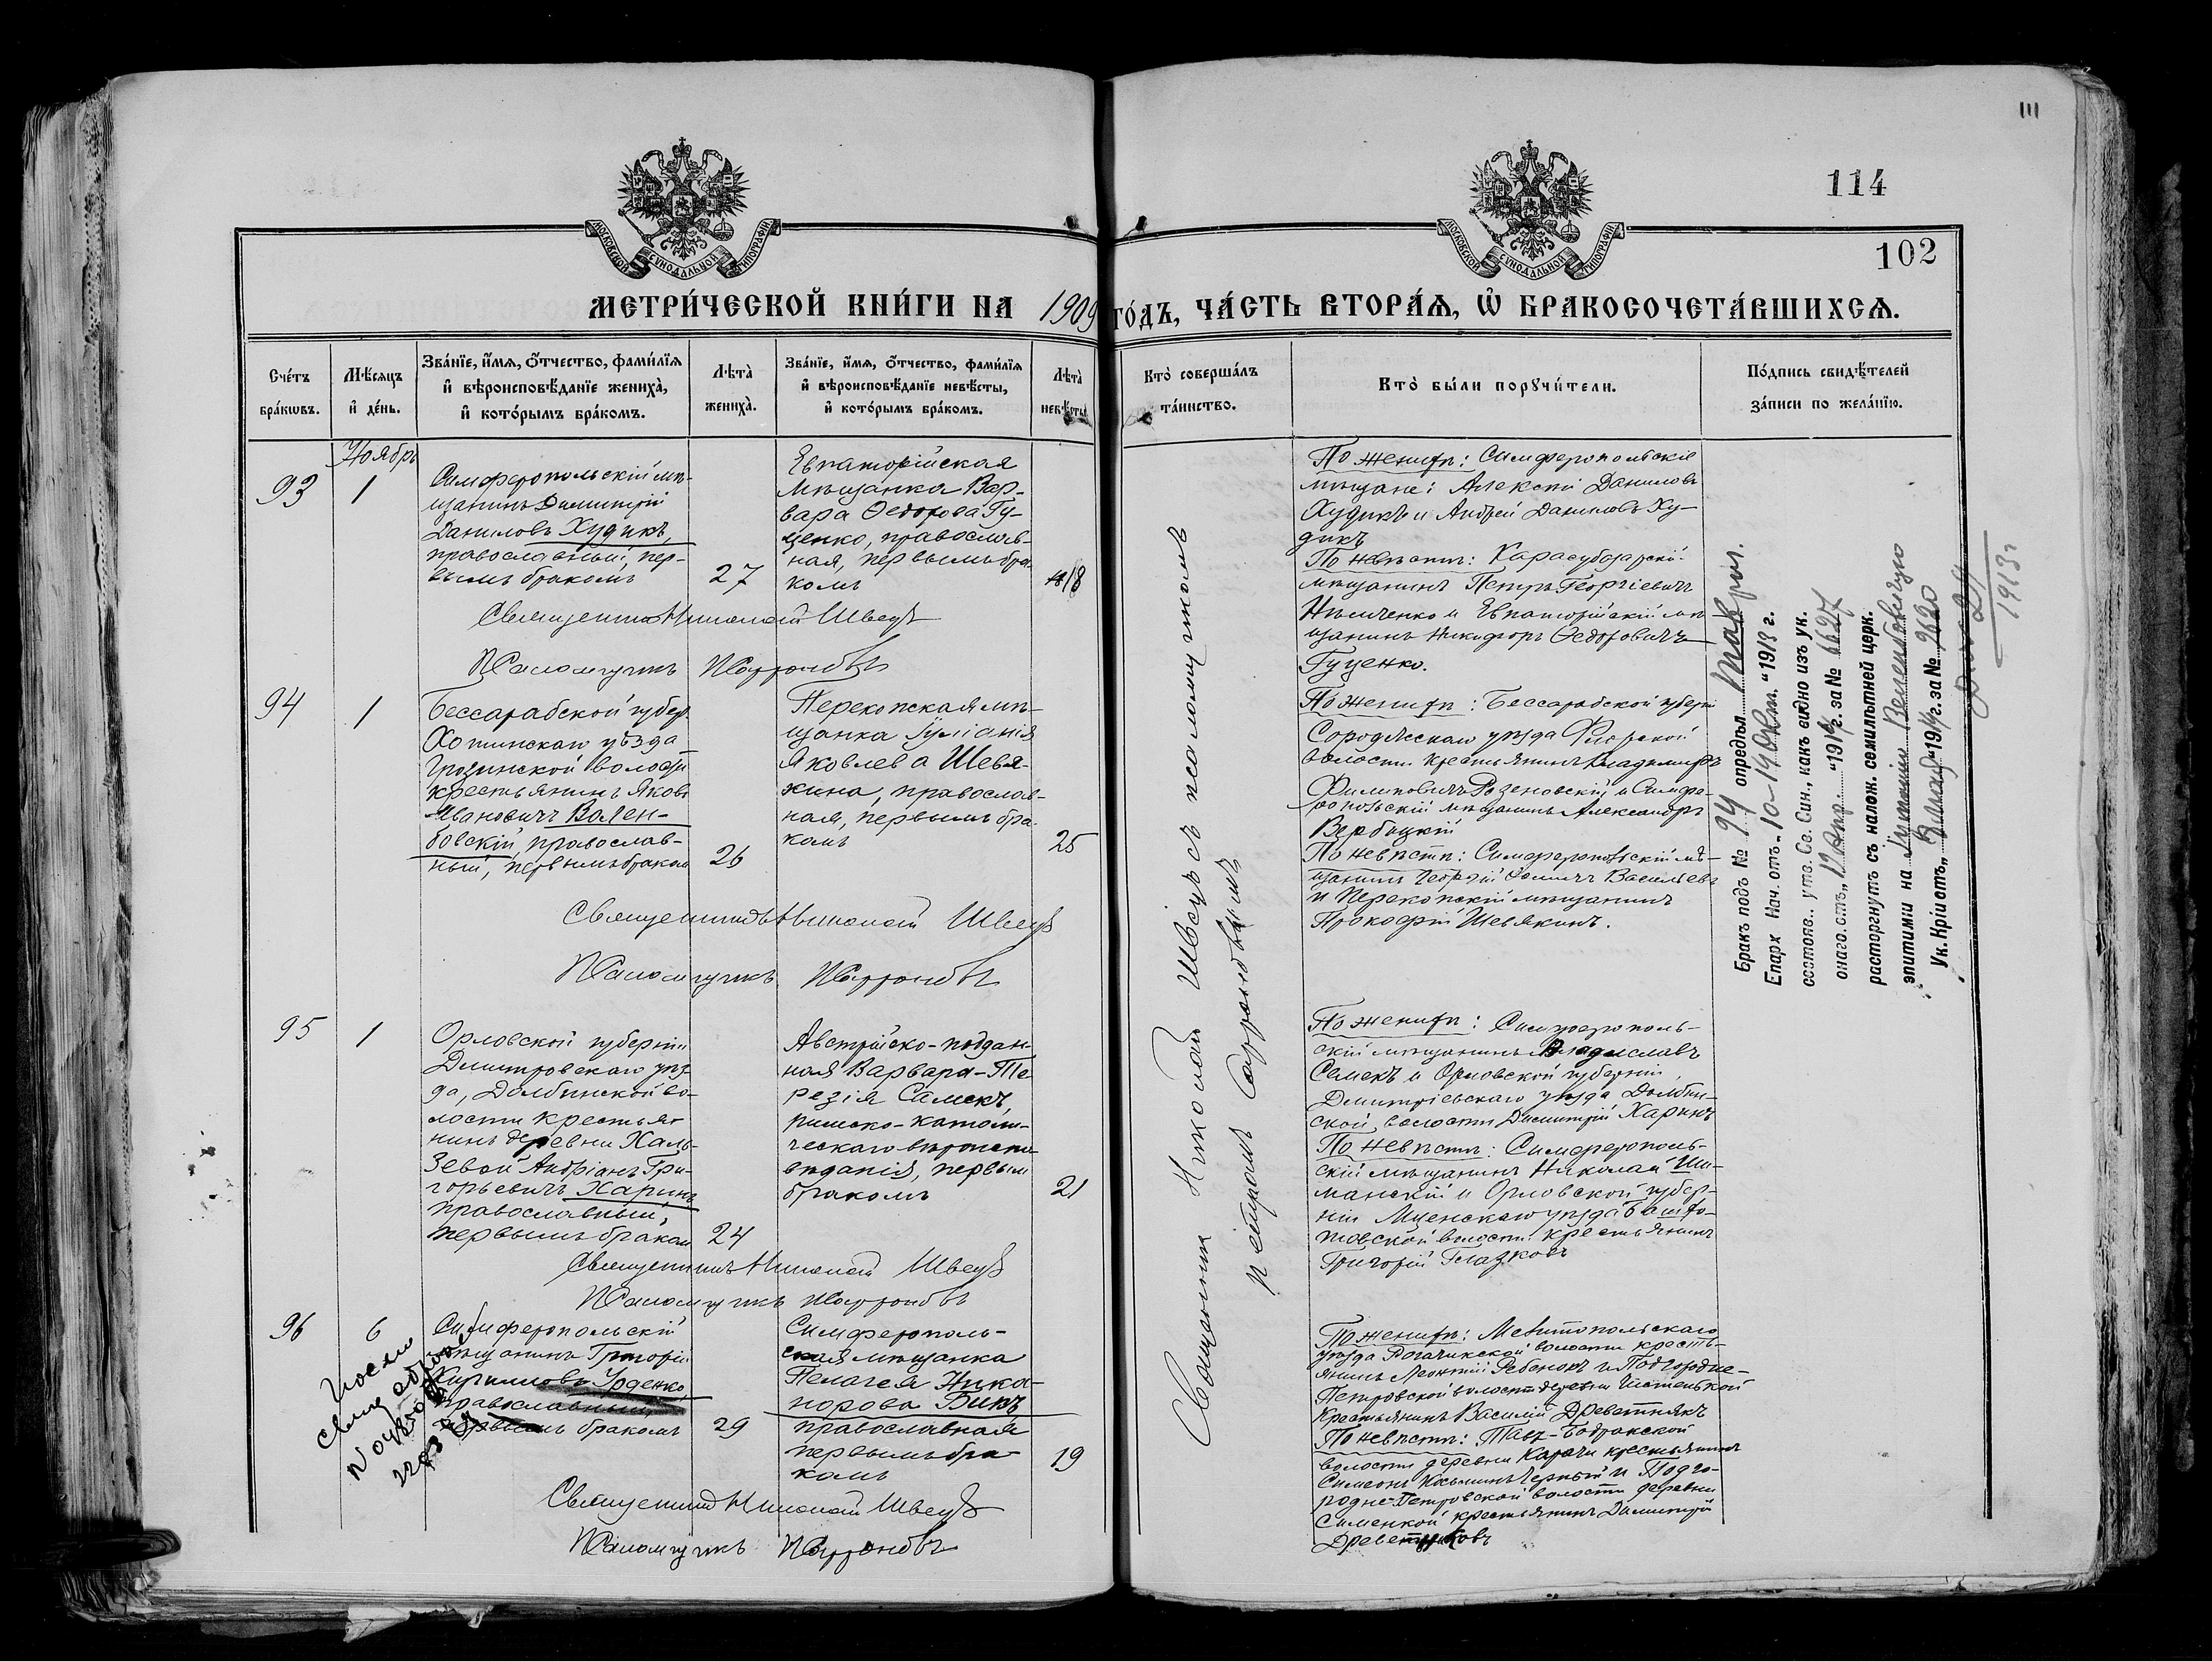 111
114
102
МОСКОВСКОЙ СѴНОДАЛЬНОЙ ТИПОГРАФІИ
МОСКОВСКОЙ СѴНОДАЛЬНОЙ ТИПОГРАФІИ
МЕТРИ́ЧЕСКОЙ КНИ́ГИ НА 1909 ГО́ДЪ, ЧА́СТЬ ВТОРА́Ѧ, Ѽ БРАКОСОЧЕТА́ВШИХСѦ.
Сче́тъ
бра́кѡвъ.
Мѣ́сяцъ
и҆ де́нь.
Зва́нїе, и҆́мѧ, ѻ҆́тчество, фами́лїѧ
и҆ вѣроисповѣ́данїе жениха̀,
и҆ кото́рымъ бра́комъ.
Лѣта̀
жениха̀.
Зва́нїе, и҆́мѧ, ѻ҆́тчество, фами́лїѧ
и҆ вѣроисповѣ́данїе невѣ́сты,
и҆ кото́рымъ бра́комъ.
Лѣта̀
невѣ́сты
Кто̀ соверша́лъ
та́инство.
Кто̀ бы́ли порꙋчи́тели.
По́дпись свидѣ́телей
за́писи по жела́нїю.
Ноябрь
93
1
Симферопольскій мѣ-
щанинъ Димитрій
Даниловъ Худикъ,
православный, пер-
вымъ бракомъ
27
Евпаторійская
мѣщанка Вар-
вара Ѳедорова Гу-
ценко, православ-
ная, первымъ бра-
комъ
18
Священникъ Николай Швецъ
Псаломщикъ
По женихѣ: Симферопольскіе
мѣщане: Алексѣй Даниловъ
Худикъ и Андрей Даниловъ Ху-
дикъ
По невѣстѣ: Карасубазарскій
мѣщанинъ Петръ Георгіевичъ
Нѣмченко и Евпаторійскій мѣ-
щанинъ Никифоръ Ѳедоровичъ
Гуценко.
94
1
Бессарабской губер.
Хотинскаго уѣзда
Грозинской волости
крестьянинъ Яковъ
Ивановичъ Вален-
бовскій, православ-
ный, первымъ браком
26
Перекопская мѣ-
щанка Іуліанія
Яковлева Шевя-
кина, православ-
ная, первымъ бра-
комъ
25
Священникъ Николай Швецъ
Псаломщикъ
По женихѣ: Бессарабской губерніи
уѣзда
волости крестьянинъ Владимиръ
Филиповичъ Розеновскій, и Симфе-
ропольскій мѣщанинъ Александръ
Вербицкій
По невѣстѣ: Симферопольскій мѣ-
щанинъ Георгій Васильевъ
и Перекопскій мѣщанинъ
Прокофій Шевякинъ.
Бракъ подъ № 94 опредѣл. Таврич.
Епарх Нач. отъ „10–19 Окт. “1913 г.
состояв., утв. Св. Син., какъ видно изъ ук.
онаго отъ „12 Апр. “1914 г. за № 6627
расторгнутъ съ налож. семилѣтней церк.
эпитиміи на
Ук. Кріистъ „ “1914 г. за № 9620
1913 г
95
1
Орловской губерніи
Димитровскаго уѣз-
да, Долбинской во-
лости крестья-
нинъ деревни Халь-
зевой Андріанъ Гри-
горьевичъ Харинъ
православный,
первымъ браком
24
Австрійско-поддан-
ная Варвара-Те-
резія Самекъ,
римско-католи-
ческаго вѣроиспо-
вѣданія, первым
бракомъ
21
Священникъ Николай Швецъ
Псаломщикъ
По женихѣ: Симферополь-
скій мѣщанинъ Владиславъ
Самекъ и Орловской губерніи
Димитріевскаго уѣзда Долбин-
ской волости Димитрій Харинъ
По невѣстѣ: Симферополь-
скій мѣщанинъ Николай Ши-
манскій и Орловской губер-
ніи Мценскаго уѣзда
волости крестьянинъ
Григорій Глазковъ
96
6
Симферопольскій
мѣщанинъ Григорій
Кирилловъ Уоденко,
православный,
первымъ бракомъ
29
Симферополь-
ская мѣщанка
Пелагея Ника-
норова Бикъ
православная
первымъ бра-
комъ
19
Священникъ Николай Швецъ
Псаломщикъ
По женихѣ: Мелитопольскаго
уѣзда Рогачикской волости кресть-
янинъ Леонтій Ребенокъ и Подгородне-
Петровской волости деревни Чистенькой
крестьянинъ Василій Древетнякъ
По невѣстѣ: Тавъ-Бодракской
волости деревни Карачи крестьянинъ
Симеонъ Косьминъ Черный и Подго-
родне-Петровской волости деревни
крестьянинъ Димитрій
Священникъ Николай Швецъ съ псаломщикомъ